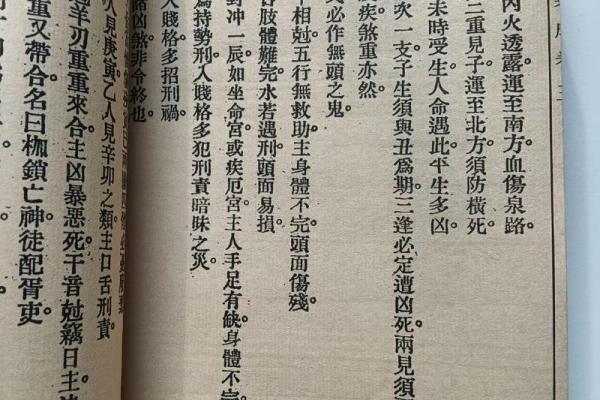 丙火透露運至南方血傷泉路。
三重見子運至北方須防橫死。
未時受生人命遇此平生多凶。
吹一支子生須與丑爲期三逢必定遭凶死兩見須
疾煞重亦然。
必作無頭之鬼。
平相尅五行無救助主身體不完頭面傷殘。
肢體難完水若遇刑頭面易損。
對冲一辰如坐命宮或疾厄宮主人手足有缺身體不完
爲持勢刑入賤格多犯刑責暗昧之災。
入賤格多招刑禍。
凶煞非令終也。
人見庚寅乙人見辛卯之類主口舌刑責。
羊刃重重來合主凶暴惡死干音尅竊日主
重又帶合名曰枷鎖亡神徒配胥吏